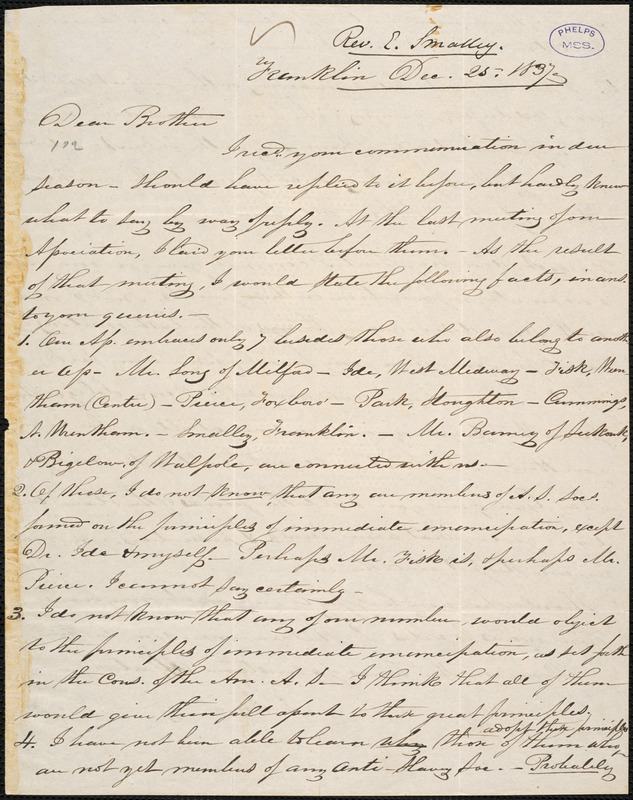 Rev. E. Smalley.
PHELPS
MSS.
Franklin Dec. 25, 1837
Dear Brother
192
I recd. your communication in due
season – should have replied to it before, but hardly knew
what to say by way of reply. At the last meeting of our
Association, I laid your letter before them. – As the result
of that meeting, I would state the following facts, in ans.
to your queries. –
1. Our Ass. embraces only 7 besides those who also belong to anoth
er Ass – Mr. Long of Milford – Ide, West Medway – Fisk, Wren
tham (Centre) – Pierce, Foxboro' – Park, Stoughton – Cummings,
N. Wrentham. – Smalley, Franklin. – Mr. Barney of Seekonk,
& Bigelow, of Walpole, are connected with us. –
2. Of these, I do not know that any are members of A. S. Soc.
formed on the principles of immediate emancipation, except
Dr. Ide & myself – Perhaps Mr. Fisk is, & perhaps Mr.
Pierce. I cannot say certainly –
3. I do not know that any of our number would object
to the principles of immediate emancipation, as set forth
in the Cons. of the Am. A. S. – I think that all of them
would give their full assent to these great principles.
adopt these principles
4. I have not been able to learn why those of them who
are not yet members of any Anti-Slavery Soc. – Probably